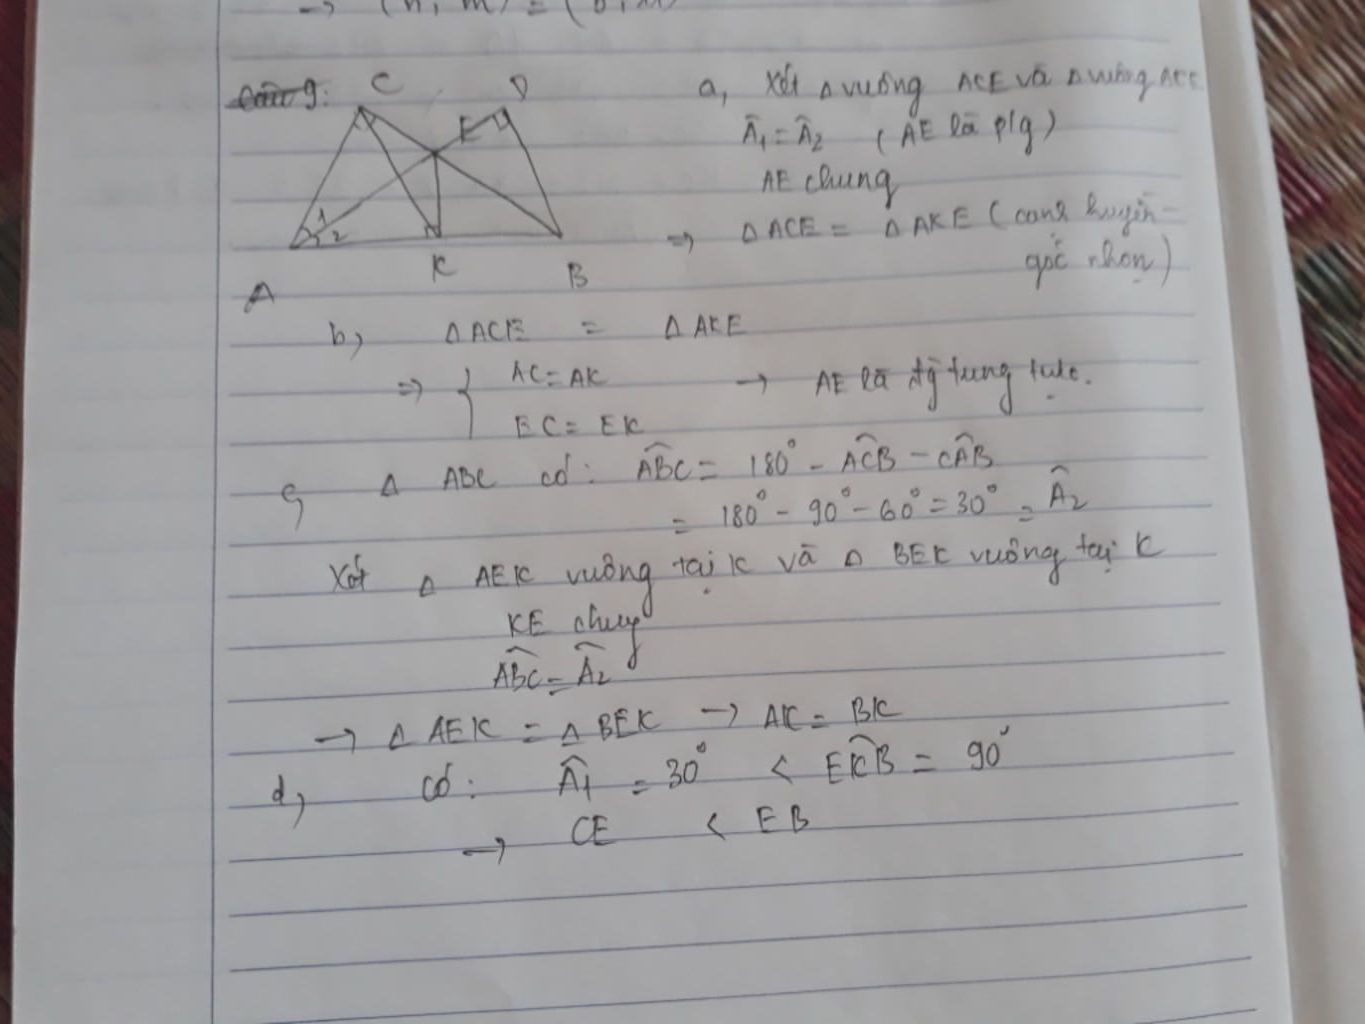 → (n, m) =
Câu 9:
C D
E
1
2
A K B
a, Xét Δ vuông ACE và Δ vuông
Â₁ = Â₂ ( AE là p/g )
AE chung
⇒ Δ ACE = Δ AKE ( cạnh huyền -
góc nhọn )
b, Δ ACE = Δ AKE
⇒ { AC = AK → AE là đg trung trực.
EC = EK
c, Δ ABC có : ABC = 180° - ACB - CAB
= 180° - 90° - 60° = 30° = Â₂
Xét Δ AEK vuông tại K và Δ BEK vuông tại K
KE chung
ABC = Â₂
→ Δ AEK = Δ BEK → AK = BK
d, Có : Â₁ = 30° < EKB = 90°
→ CE < EB